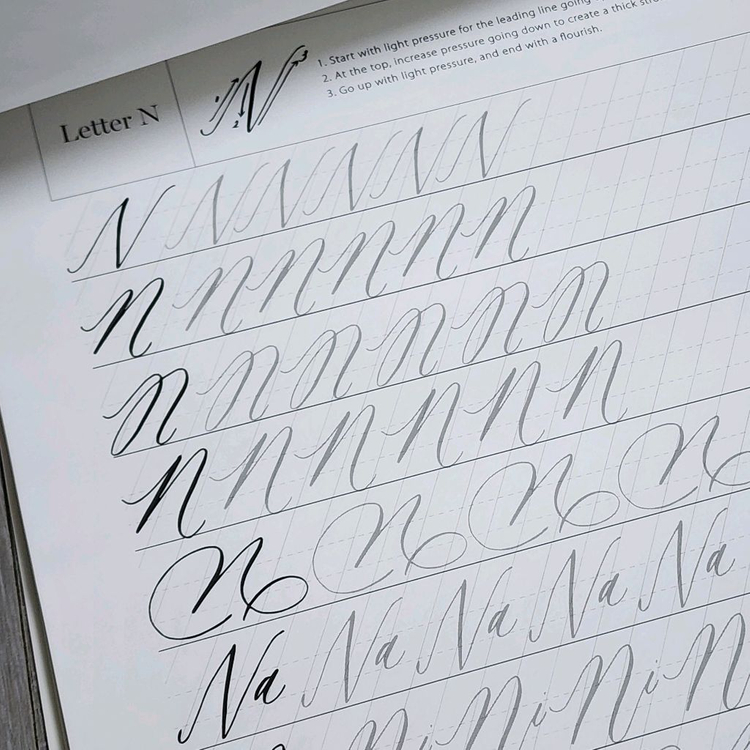 Letter N
N 1 2 3
1. Start with light pressure for the leading line going
2. At the top, increase pressure going down to create a thick
3. Go up with light pressure, and end with a flourish.
N N N N N N
N N N N N N
N N N N N N
N N N N N N
N N N N
Na Na Na Na Na
Ni Ni Ni N